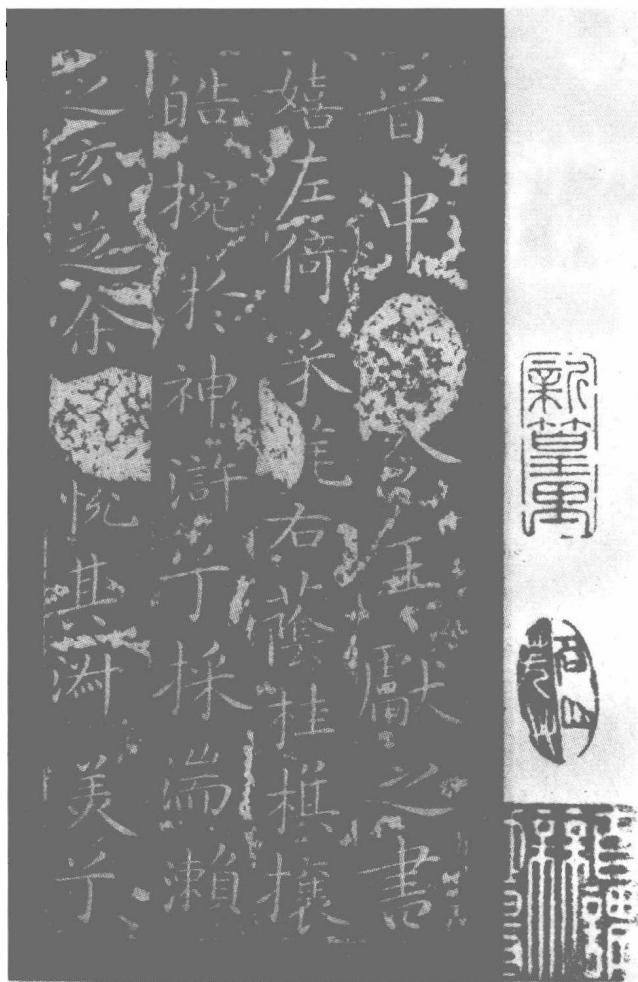 晋中令王獻之書
嬉左倚采旄右蔭桂旗攘
皓捥於神滸兮採湍瀨
之玄芝余悅其淑美兮
新篁里